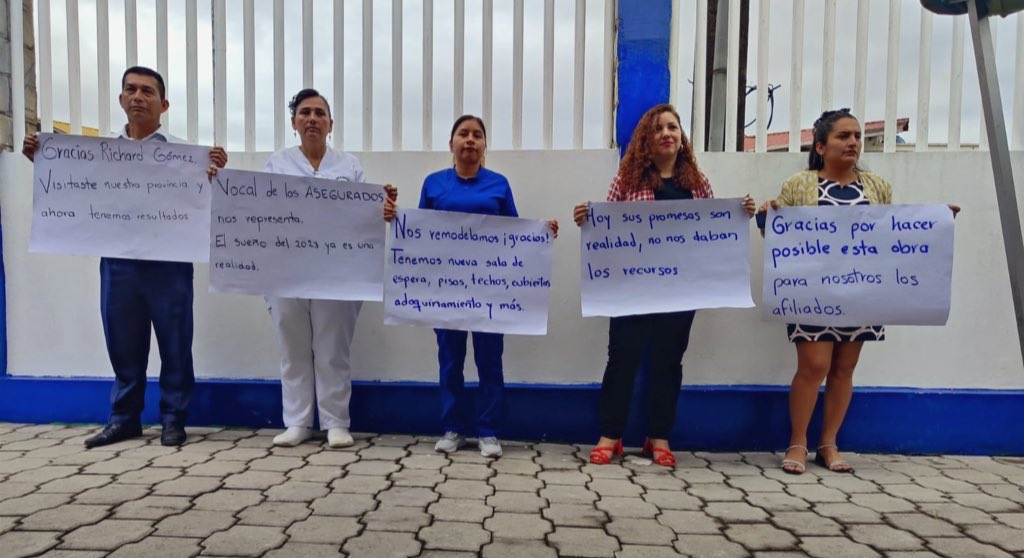 Gracias Richard Gómez.
Visitaste nuestra provincia y
ahora tenemos resultados
Vocal de los ASEGURADOS
nos representa.
El sueño del 2023 ya es una
realidad.
Nos remodelamos ¡gracias!
Tenemos nueva sala de
espera, pisos, techos, cubiertas
adoquinamiento y más.
Hoy sus promesas son
realidad, no nos daban
los recursos
Gracias por hacer
posible esta obra
para nosotros los
afiliados.